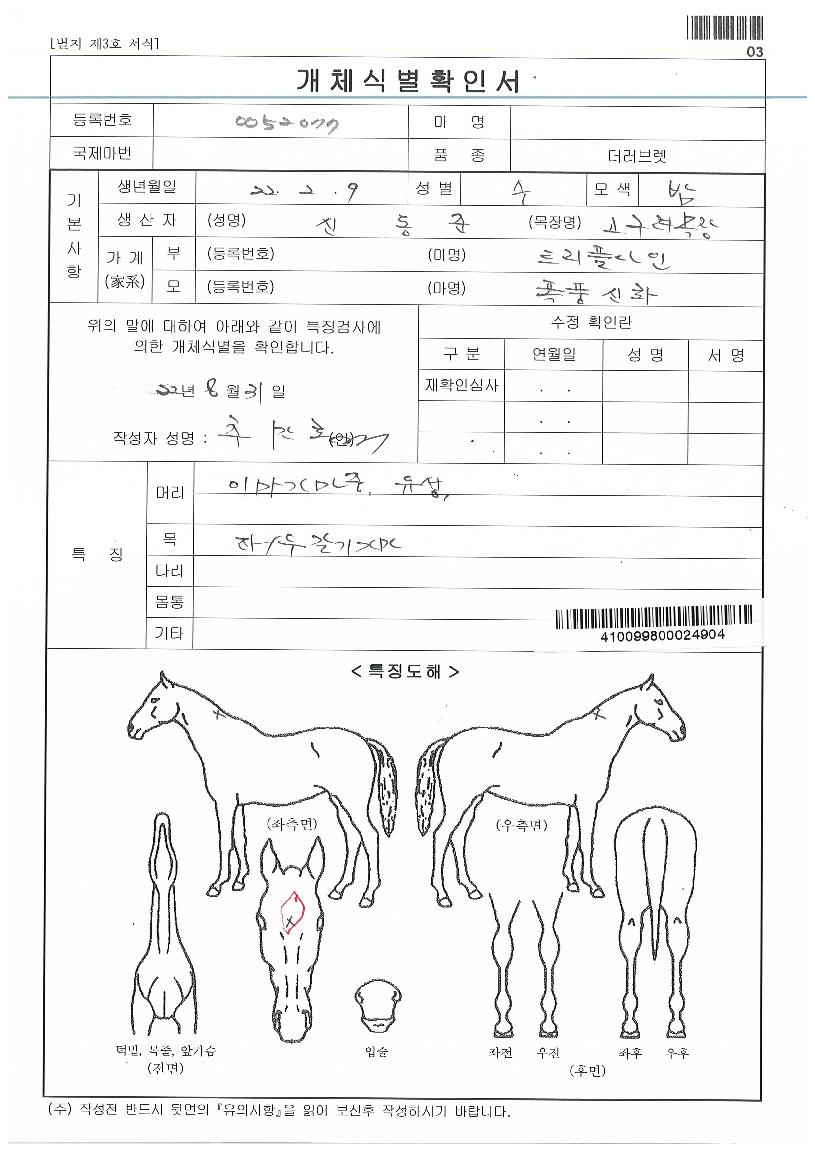 [별지 제3호 서식]
03
개체식별확인서
등록번호 0052077 마 명
국제마번 품 종 더러브렛
기본사항
생년월일 22. 2. 9 성별 수 모색 밤
생산자 (성명) 신 동 준 (목장명) 고구려목장
가계(家系) 부 (등록번호) (마명) 트리플나인
모 (등록번호) (마명) 폭풍신화
위의 말에 대하여 아래와 같이 특징검사에
의한 개체식별을 확인합니다.
22년 8월 31일
작성자 성명 : (인)
수정 확인란
구분 연월일 성명 서명
재확인심사 . .
. .
. .
특 징
머리 이마가마중, 유성,
목 좌/우갈기가마
다리
몸통
기타
410099800024904
<특징도해>
(좌측면) (우측면)
턱밑, 목줄, 앞가슴 입술 좌전 우전 좌후 우후
(전면) (후면)
(주) 작성전 반드시 뒷면의 『유의사항』을 읽어 보신후 작성하시기 바랍니다.